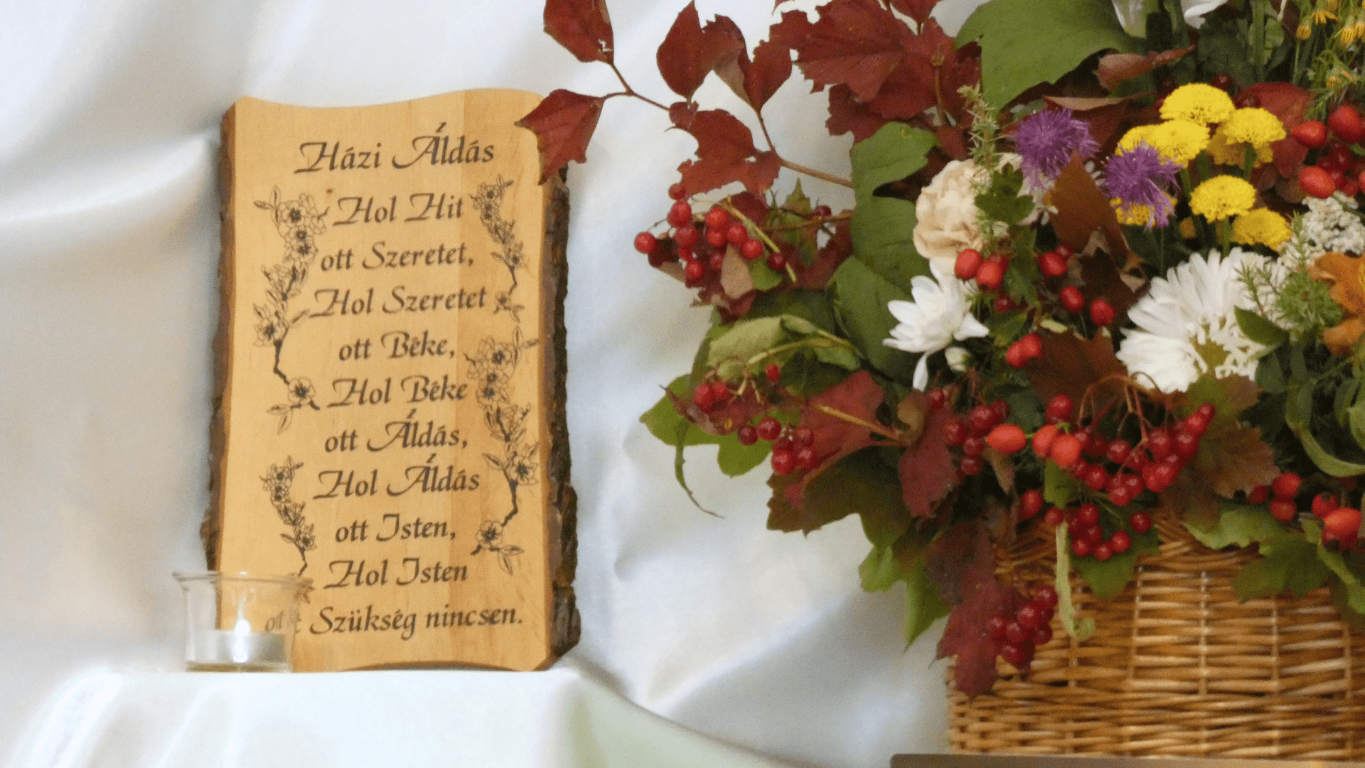 Házi Áldás
Hol Hit
ott Szeretet,
Hol Szeretet
ott Béke,
Hol Béke
ott Áldás,
Hol Áldás
ott Isten,
Hol Isten
ott Szükség nincsen.